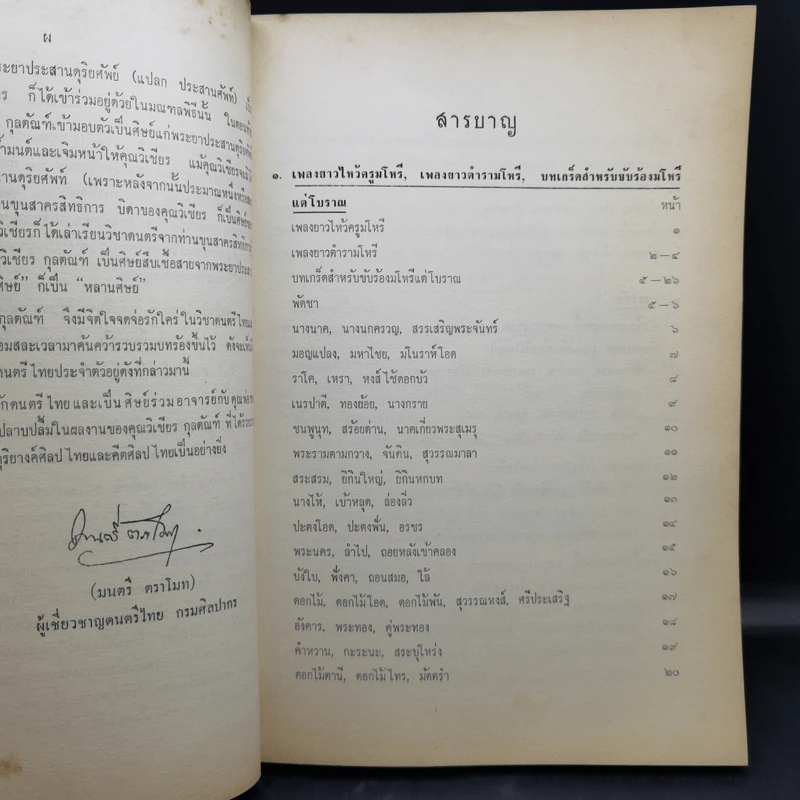 ผ
ระยาประสานดุริยศัพย์ (แปลก ประสานศัพท์)
ร ก็ได้เข้าร่วมอยู่ด้วยในมณฑลพิธีนั้น ในตอนที่
กุลตัณฑ์เข้ามอบตัวเป็นศิษย์แก่พระยาประสานดุริย
ำมนต์และเจิมหน้าให้คุณวิเชียร แม้คุณวิเชียร
านดุริยศัพท์ (เพราะหลังจากนั้นประมาณหนึ่ง
นขุนสาครสิทธิการ บิดาของคุณวิเชียร ก็เป็นศิษย์
วิเชียรก็ได้เล่าเรียนวิชาดนตรีจากท่านขุนสาครสิทธิการ
วิเชียร กุลตัณฑ์ เป็นศิษย์สืบเชื้อสายจากพระยาประสาน
ศิษย์” ก็เป็น “หลานศิษย์”
กุลตัณฑ์ จึงมีจิตใจจดจ่อรักใคร่ในวิชาดนตรีไทย
อมสละเวลามาค้นคว้ารวบรวมบทร้องขึ้นไว้ ดังจะเห็น
ดนตรีไทยประจำตัวอยู่ดังที่กล่าวมานี้
ักดนตรีไทยและเป็นศิษย์ร่วมอาจารย์กับคุณพ่อ
ปลาบปลื้มในผลงานของคุณวิเชียร กุลตัณฑ์ ที่ได้
ุริยางค์ศิลปไทยและคีตศิลปไทยเป็นอย่างยิ่ง
(มนตรี ตราโมท)
ผู้เชี่ยวชาญดนตรีไทย กรมศิลปากร
สารบาญ
๑. เพลงยาวไหว้ครูมโหรี, เพลงยาวตำรามโหรี, บทเกร็ดสำหรับขับร้องมโหรี
แต่โบราณ หน้า
เพลงยาวไหว้ครูมโหรี ๑
เพลงยาวตำรามโหรี ๒—๔
บทเกร็ดสำหรับขับร้องมโหรีแต่โบราณ ๕—๒๖
พัดชา ๕—๖
นางนาค, นางนกครวญ, สรรเสริญพระจันทร์ ๖
มอญแปลง, มหาไชย, มโนราห์โอด ๗
ราโค, เหรา, หงส์ไซ้ดอกบัว ๘
เนรปาตี, ทองย้อย, นางกราย ๙
ชนพูนุท, สร้อยต่าน, นาคเกี่ยวพระสุเมรุ ๑๐
พระรามตามกวาง, จันดิน, สุวรรณมาลา ๑๑
สระสรม, ยิกินใหญ่, ยิกินหกบท ๑๒
นางไห้, เบ้าหลุด, ล่องลิ่ว ๑๓
ปะตงโอด, ปะตงพั่น, อรชร ๑๔
พระนคร, ลำไป, ถอยหลังเข้าคลอง ๑๕
บังใบ, พั่งคา, ถอนสมอ, โล้ ๑๖
ดอกไม้, ดอกไม้โอด, ดอกไม้พัน, สุวรรณหงส์, ศรีประเสริฐ ๑๗
อังคาร, พระทอง, คู่พระทอง ๑๘
คำหวาน, กะระนะ, สระบุโหร่ง ๑๙
ดอกไม้ตานี, ดอกไม้ไทร, มัดตรำ ๒๐